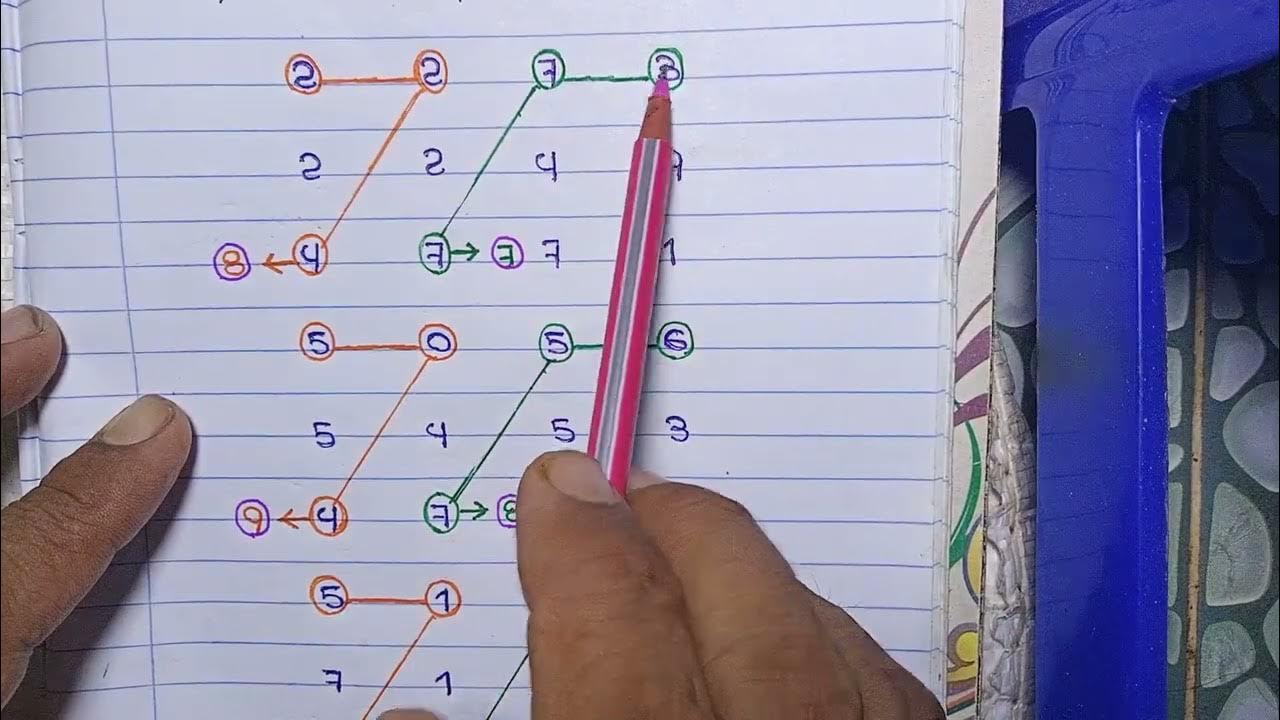 2 2 7 3
2 2 4 7
8 ← 4 7 → 7 7 1
5 0 5 6
5 4 5 3
9 ← 4 7 → 8
5 1
7 1